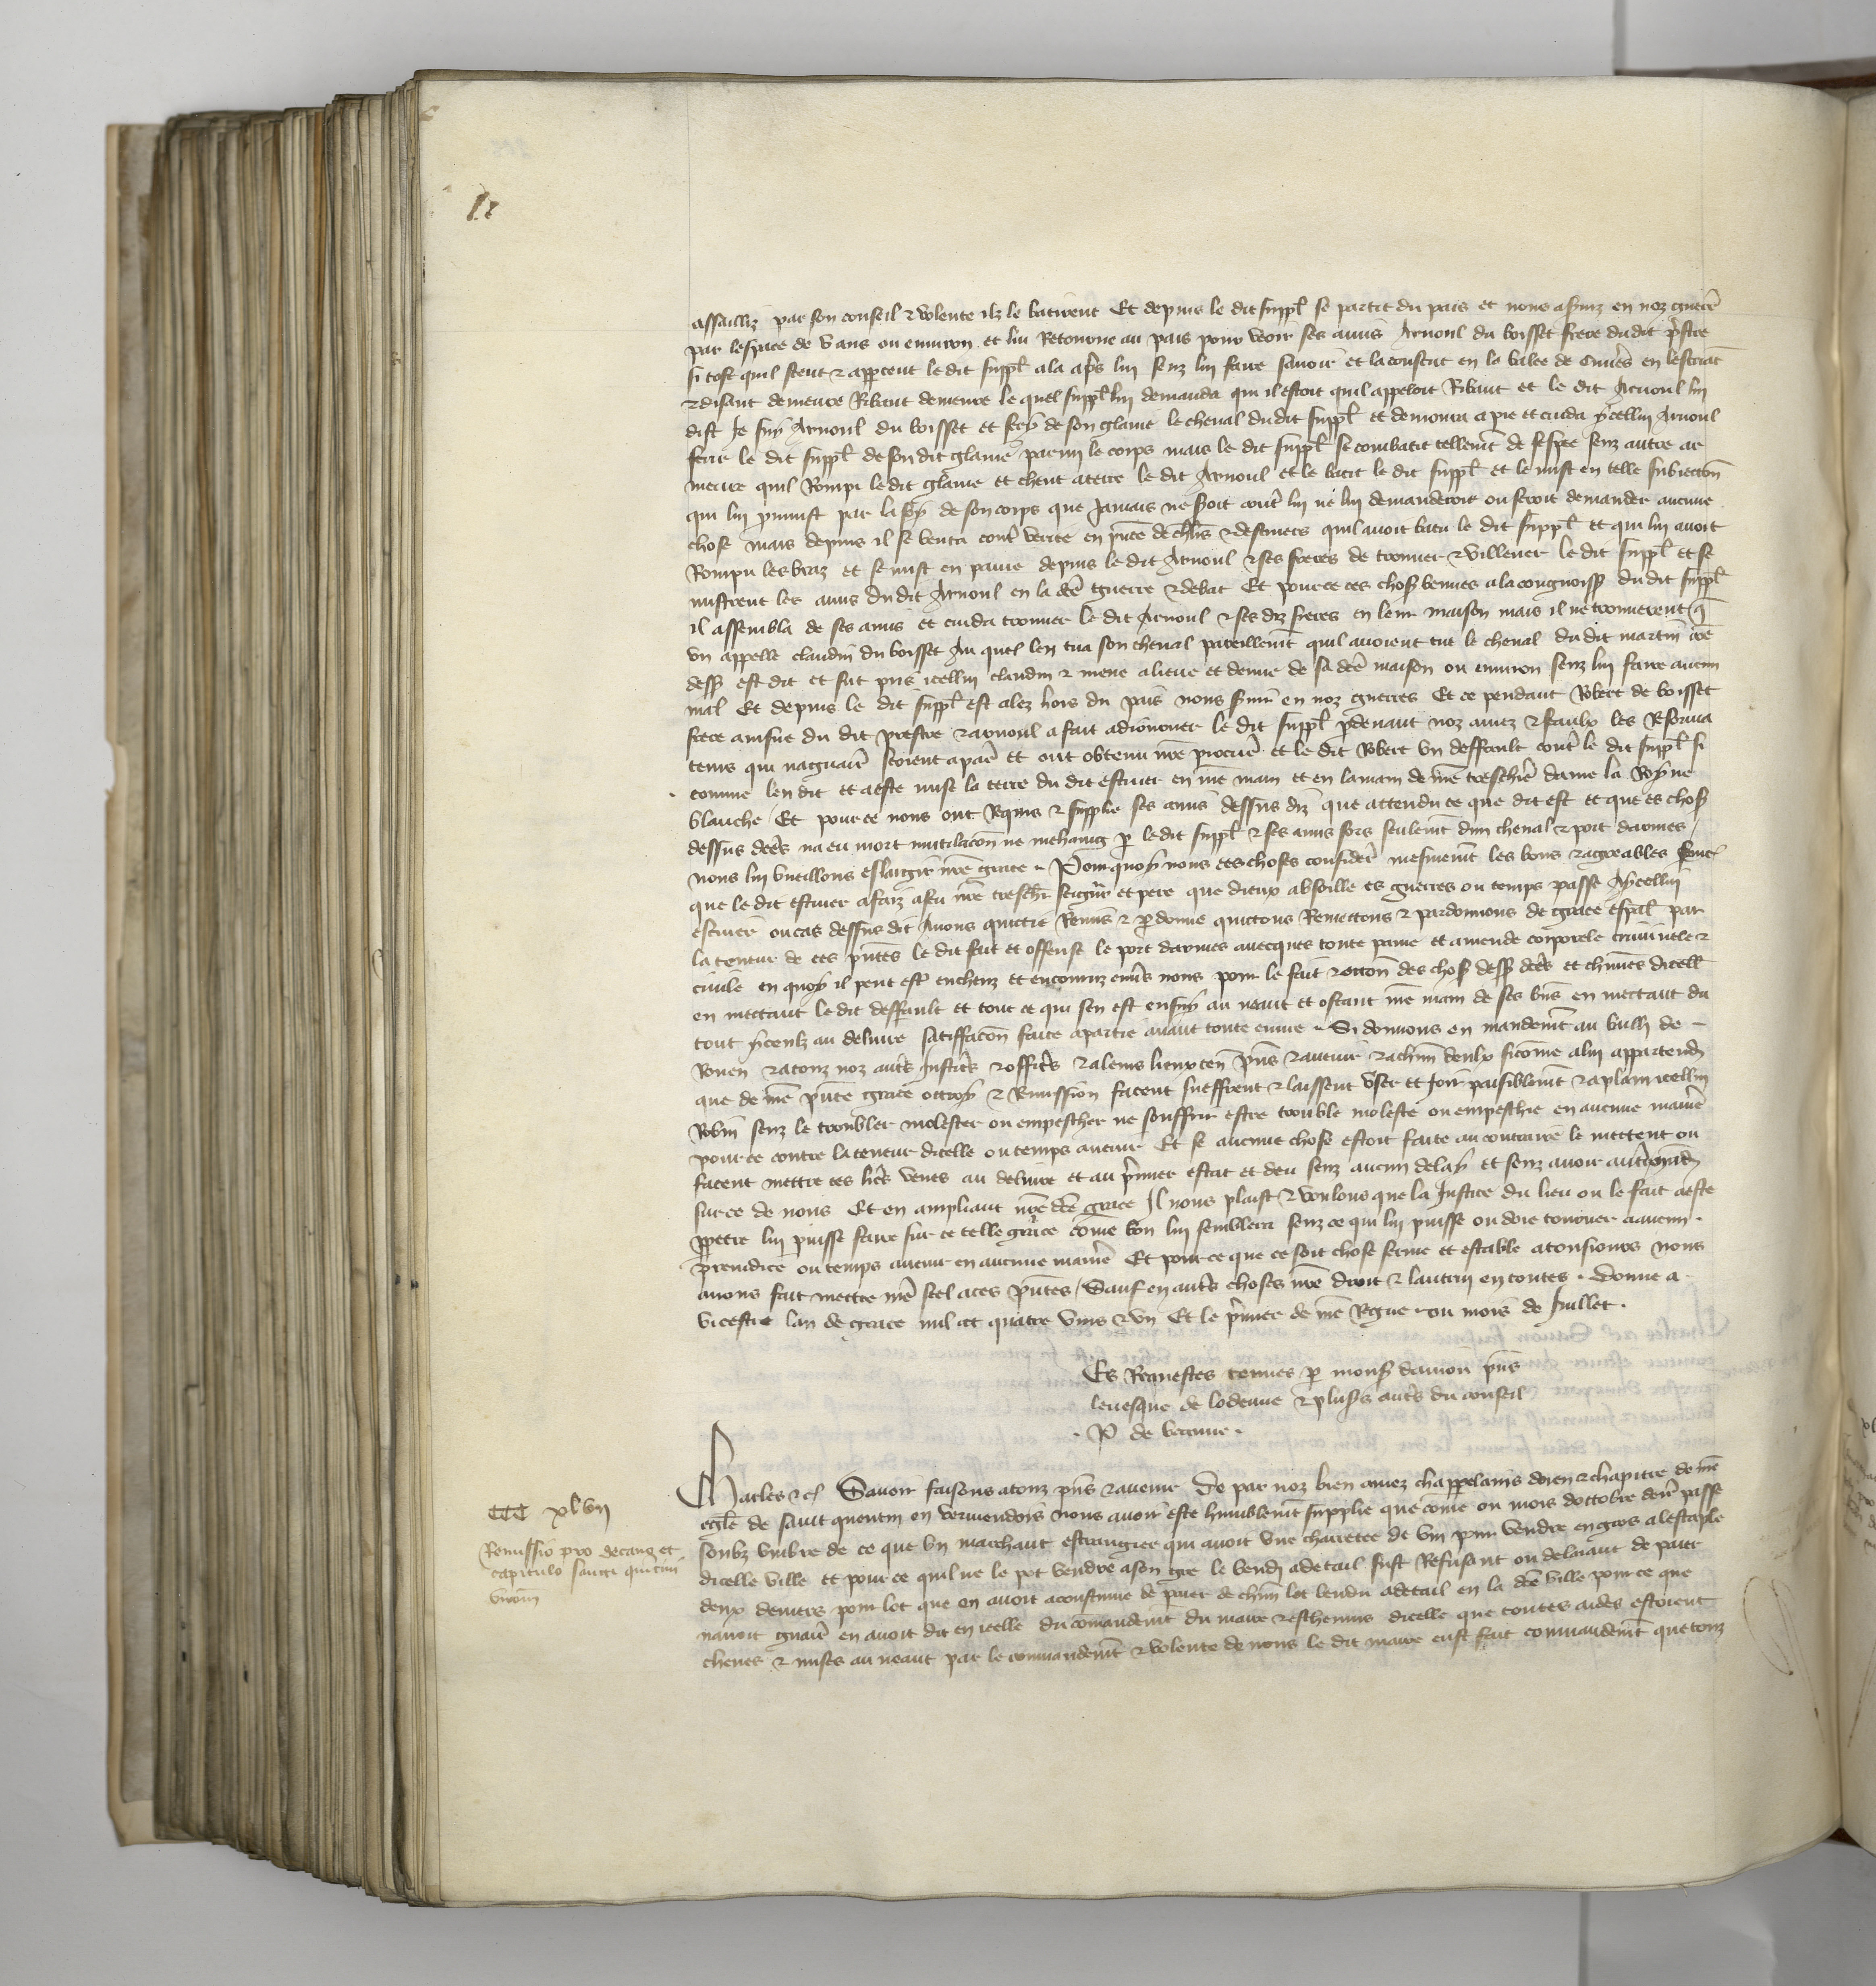 assailliz par son conseil & volente ilz le batirent Et depuis le dit suppl se partit du pais et nous a serviz en noz guerre
par lespace de v ans ou environ et lui Retourne au pais pour veoir ses amis Arnoul du boisset frere dudit prestre
si tost quil sceut & apperceut le dit suppl ala apres lui senz lui faire savoir et laconsceut en la valee de en lescriant
& disant demeure Ribaut demeure le quel suppl lui demanda qui il estoit quil appeloit Ribaut et le dit Arnoul lui
dist Je suy Arnoul du boisset et fery de son glaive le cheval dudit suppl et demoura a pie et cuida ycellui Arnoul
ferir le dit suppl de son dit glaive parmi le corps mais le dit suppl se combatit tellemt de sespee senz autre ar
meure quil Rompi le dit glaive et cheut aterre le dit Arnoul et le batit le dit suppl et le mist en telle subiection
qui lui promist par la foy de son corps que Jamais ne seroit contre lui ne lui demanderoit ou feroit demander aucune
chose mais depuis il se venta contre verite en pnce de chlrs & descuiers quil avoit batu le dit suppl et qui lui avoit
Rompu les braz et se mist en paine depuis le dit Arnoul & ses freres de trouver & villener le dit suppl et se
mistrent les amis du dit Arnoul en la dce guerre & debat Et pour ce ces chos venues a la cougnoiss du dit suppl
il assembla de ses amis et cuida trouver le dit Arnoul & ses diz freres en leur maison mais il ne trouverent q
un appelle claudin du boisset Au quel len tua son cheval pareillemt quil avoient tue le cheval du dit martin come
dess est dit et fut pris icellui claudin & mene a lieue et demie de sa dce maison ou environ senz lui faire aucun
mal Et depuis le dit suppl est alez hors du pais nous servir en noz guerres Et ce pendant Robert de boisset
frere ainsne du dit prestre & arnoul a fait adiourner le dit suppl pdevant noz amez & feaulx les Reforma
teurs qui naguaire seoient a paris et ont obtenu nre procure et le dit Robert un deffault contre le dit suppl si
comme len dit et a este mise la terre du dit escuier en nre main et en la main de nre treschre dame la Royne
blanche Et pour ce nous ont Requis & supplie ses amis dessus diz que attendu ce que dit est et que es chos
dessus dces na eu mort mutilacon ne mehaing p le dit suppl & ses amis fors seulemt dun cheval & port darmes
nous lui vueillons eslargir nre grace Pourquoy nous ces choses considere mesmemt les bons & agreables
que le dit escuier a faiz a feu nre treschr seigneur et pere que dieux absoille es guerres ou temps passe Aycellui
escuier ou cas dessus dit Avons quictie Remis & pdonne quictons Remettons & pardonnons de grace espal par
la teneur de ces pntes le dit fait et offense le port darmes avecques toute paine et amende corporele criminele &
civile en quoy il peut estre encheuz et encouruz envers nous pour le fait & des chos dess dces et chunes dicell
en mectant le dit deffault et tout ce qui sen est ensuy au neant et ostant nre main de ses bns en mectant du
tout yceulx au delivre satiffacon faite a partie avant toute euvre Si donnons en mandemt au bailli de
Rouen & a touz noz autres Justic & offic & a leurs lieuxten pns & avenir & a chun deulx si come a lui appartendra
que de nre pnte grace ottroy & Remission facent sueffrent & laissent user et Joir paisiblemt & a plain icellui
Robin senz le troubler molester ou empescher ne souffrir estre trouble moleste ou empeschie en aucune maniere
pour ce contre la teneur dicelle ou temps avenir Et se aucune chose estoit faite au contraire le mettent ou
facent mettre ces lres veues au delivre et au premier estat et deu senz aucun delay et senz avoir autre mandt
sur ce de nous Et en ampliant nre dce grace Il nous plaist & voulons que la Justice du lieu ou le fait a este
ppetre lui puisse faire sur ce telle grace come bon lui semblera senz ce qui lui puisse ou doie tourner a aucun
preiudice ou temps avenir en aucune maniere Et pour ce que ce soit chose ferme et estable a tousiours nous
avons fait mettre nre seel a ces pntes Sauf en autres choses nre droit & lautrui en toutes Donne a
vicestre lan de grace mil ccc quatre vins & un Et le premier de nre Regne ou mois de Juillet
Es Requestes tenues p mons daniou pns
levesque de lodeuve & plus autres du conseil
P de vereme
Charles &c Savoir faisons a touz pns & avenir De par noz bien amez chappelains doien & chapitre de nre
egle de saint quentin en vermendois nous avoir este humblemt supplie que come ou mois doctobre derr passe
soubz umbre de ce que un marchant estrangier qui avoit une charretee de vin pour vendre en gros a lestaple
dicelle ville et pour ce quil ne le pot vendre a son gre le vendi a detail fust Refusant ou delaiant de paier
deux deniers pour lot que on avoit acoustume de paier de chun lot vendu a detail en la dce ville pour ce que
navoit guaire en avoit dit en icelle du comandemt du maire & eschevins dicelle que toutes aides estoient
cheues & mises au neant par le commandemt & volente de nous le dit maire eust fait commandemt que touz
CCC xlvii
Remissio pro decano et
capitulo sancti quintini
virom